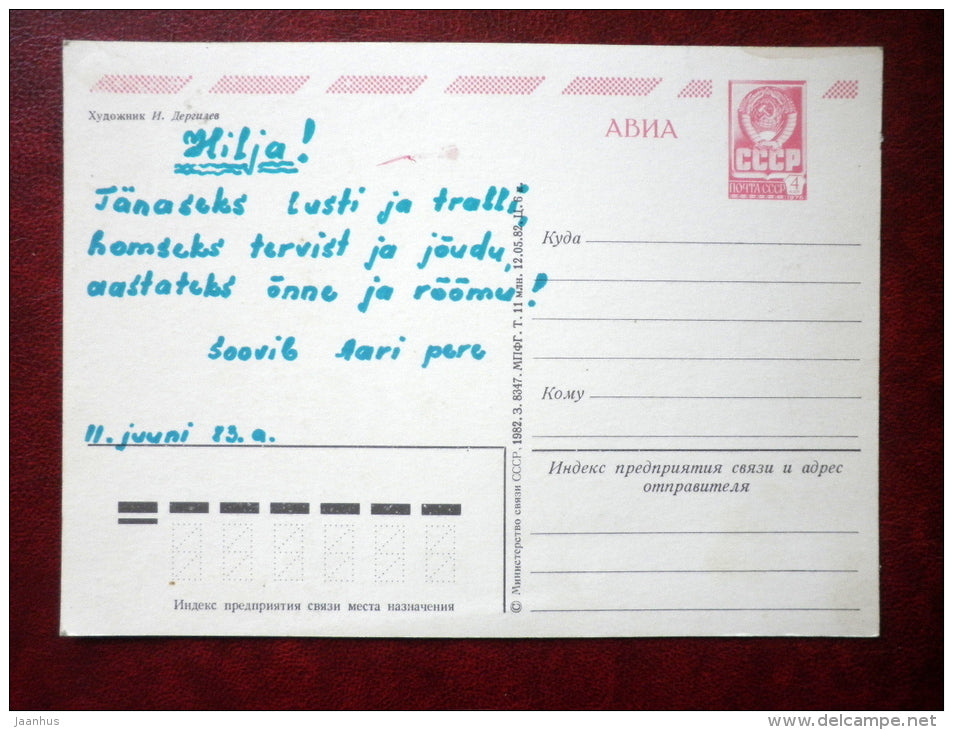 Художник И. Дергилев
АВИА
СССР
ПОЧТА СССР 4
Hilja!
Tänaseks lusti ja tralli,
homseks tervist ja jõudu,
aastateks õnne ja rõõmu!
soovib Aari pere
11. juuni 83.a.
Куда
Кому
Индекс предприятия связи и адрес
отправителя
Индекс предприятия связи места назначения
© Министерство связи СССР. 1982. З. 8347. МПФГ. Т. 11 млн. 12.05.82. Ц. 6 к.
jaanhus
www.delcampe.net